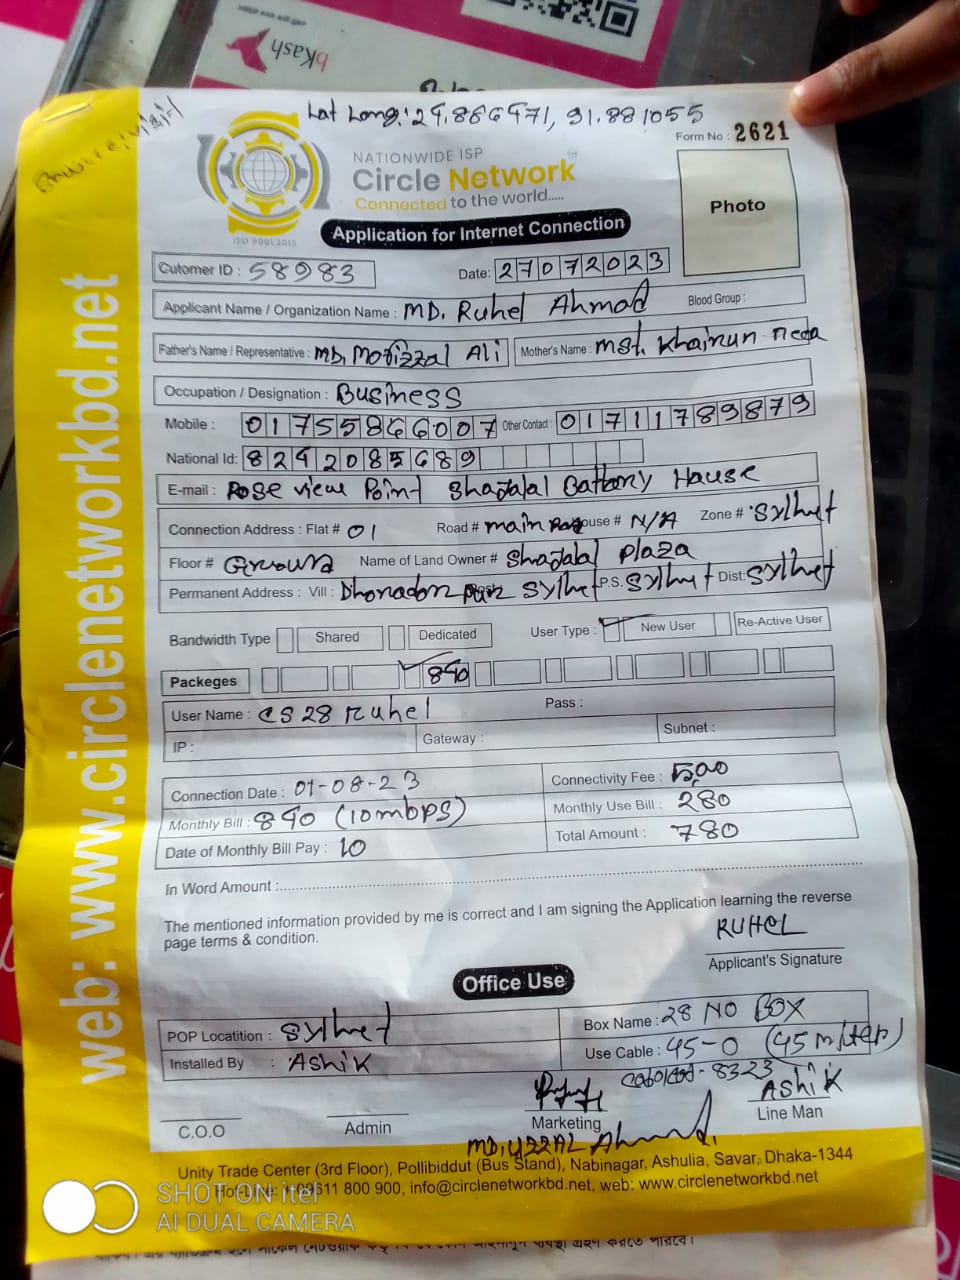 bKash
Lat Long: 24.886471, 91.881055
Form No : 2621
NATIONWIDE ISP
Circle Network
Connected to the world.....
ISO 9001:2015
Photo
Application for Internet Connection
Cutomer ID : 58983
Date: 27072023
Applicant Name / Organization Name : MD. Ruhel Ahmad
Blood Group :
Father's Name / Representative : MD. Mofizzal Ali
Mother's Name : Mst. Khairun
Occupation / Designation : Business
Mobile : 01755866007 Other Contact : 01711789879
National Id: 8242085689
E-mail : Rose view Point Shajalal Battery House
Connection Address : Flat # 01 Road # main House # N/A Zone # Sylhet
Floor # Ground Name of Land Owner # Shajalal Plaza
Permanent Address : Vill : Sylhet P.S. Sylhet Dist: Sylhet
Bandwidth Type Shared Dedicated User Type : New User Re-Active User
Packeges 840
User Name : CS28 Ruhel Pass :
IP : Gateway : Subnet :
Connection Date : 01-08-23 Connectivity Fee : 500
Monthly Bill : 840 (10mbps) Monthly Use Bill : 280
Date of Monthly Bill Pay : 10 Total Amount : 780
In Word Amount :
The mentioned information provided by me is correct and I am signing the Application learning the reverse
page terms & condition.
RUHEL
Applicant's Signature
Office Use
POP Locatition : Sylhet Box Name : 28 NO BOX
Installed By : Ashik Use Cable : 45-0 (45 miter)
8323
Ashik
C.O.O Admin Marketing Line Man
MD. UZZAL Ahmed.
Unity Trade Center (3rd Floor), Pollibiddut (Bus Stand), Nabinagar, Ashulia, Savar, Dhaka-1344
Hot-Line: +09611 800 900, info@circlenetworkbd.net, web: www.circlenetworkbd.net
web: www.circlenetworkbd.net
SHOT ON itel
AI DUAL CAMERA